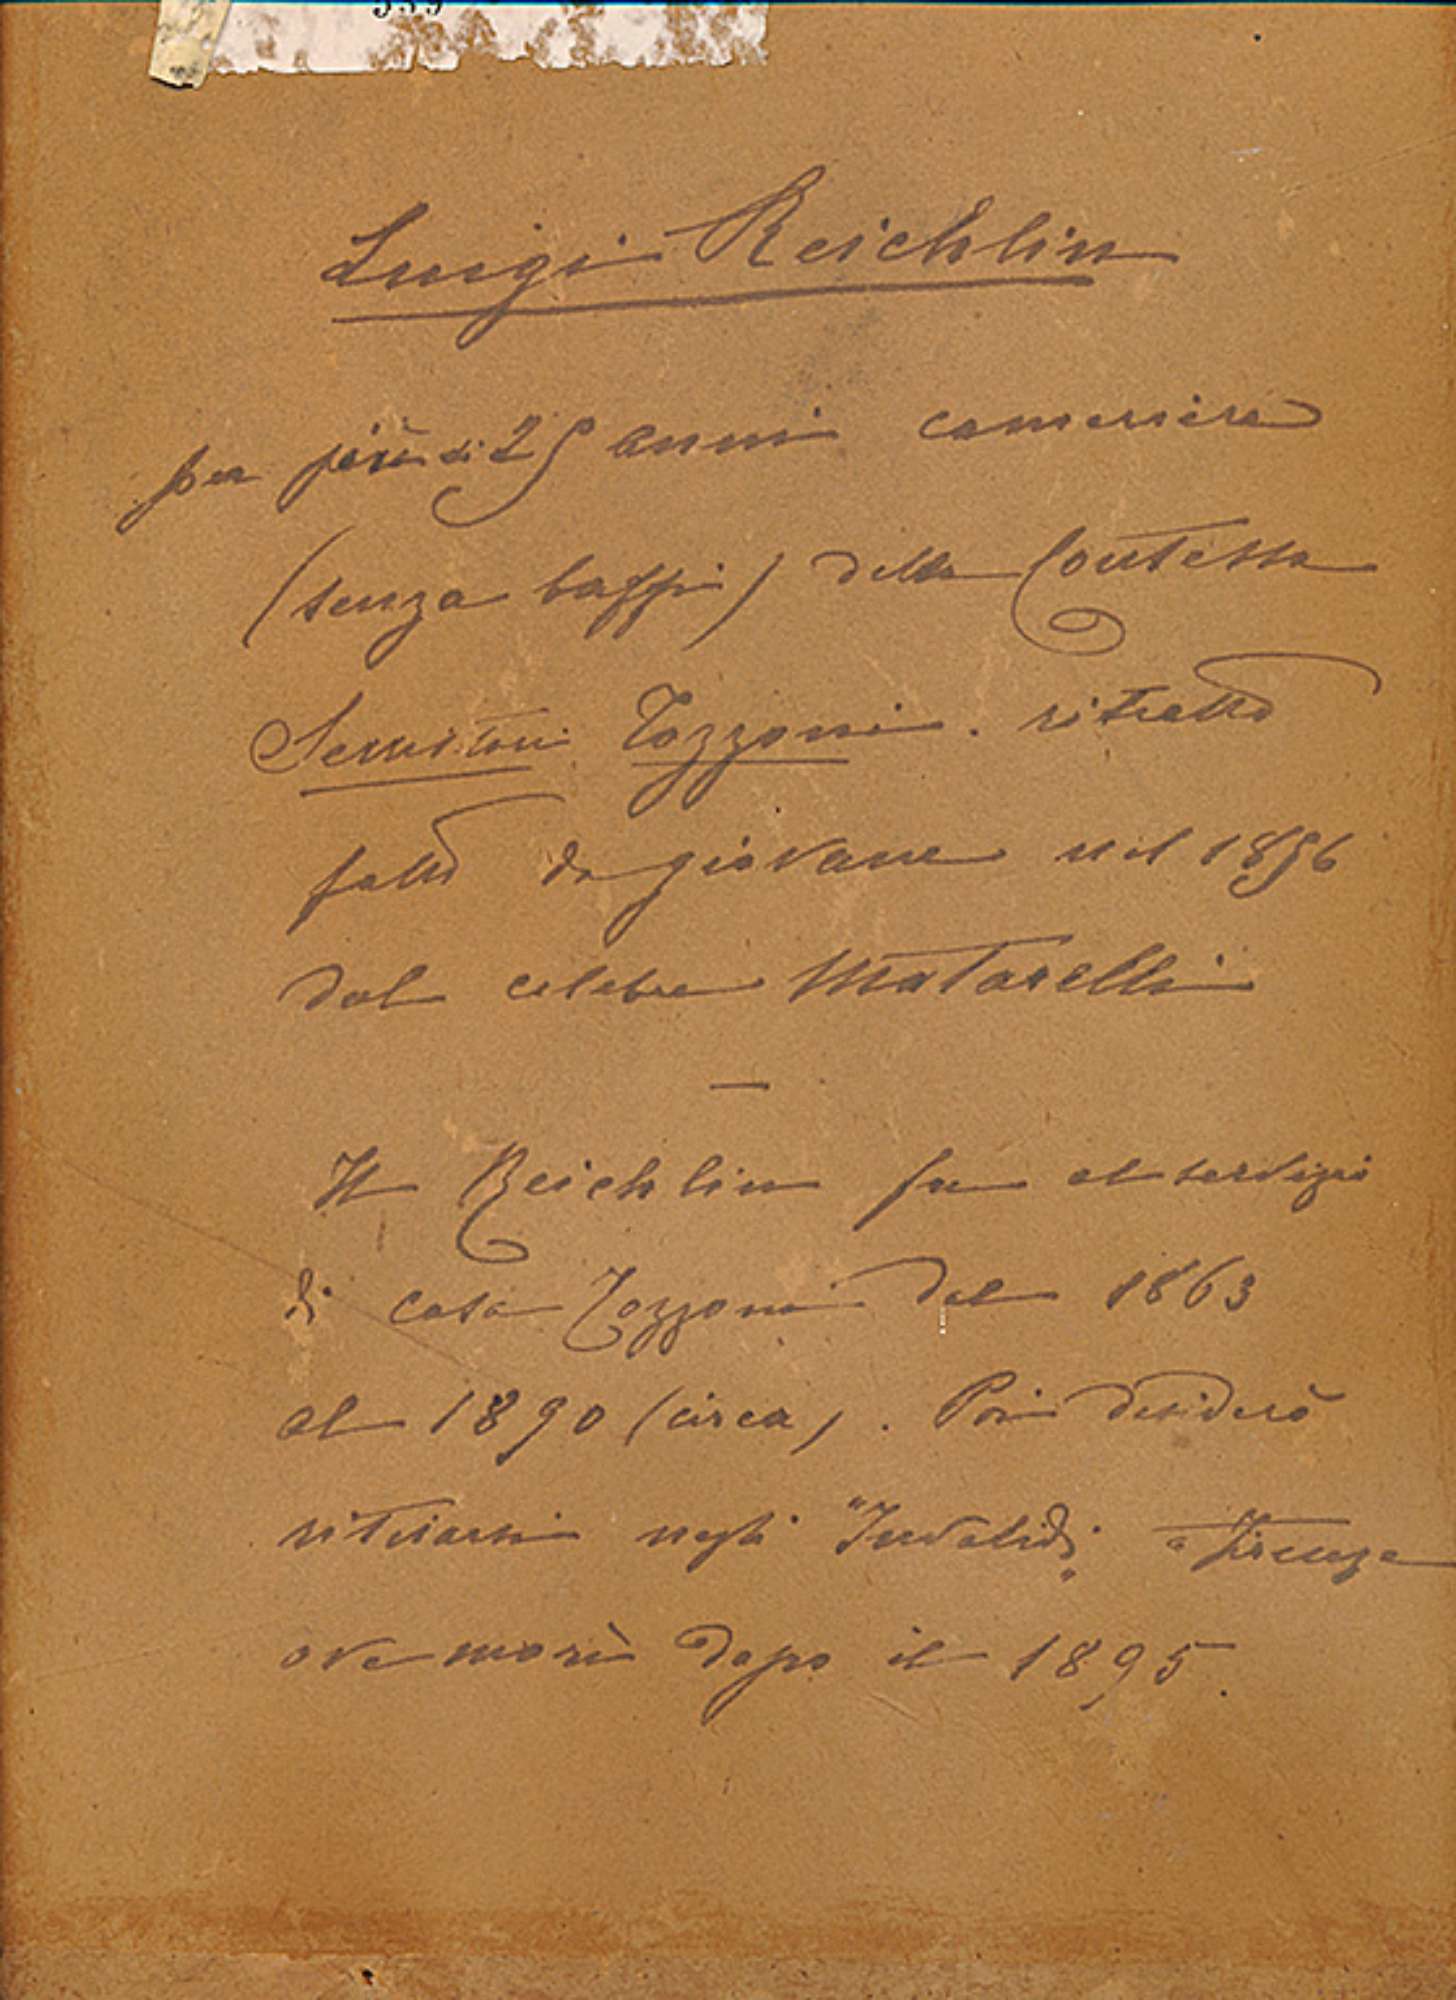 Luigi Reichlin
per più di 25 anni cameriere
(senza baffi) della Contessa
Servitori Tozzoni. ritratto
fatto da giovane nel 1856
dal celebre Matarelli
—
Il Reichlin fu al servizio
di casa Tozzoni dal 1863
al 1890 (circa). Poi desiderò
ritirarsi negli "Invalidi" a Firenze
ove morì dopo il 1895.